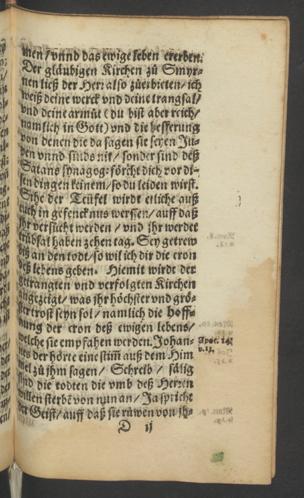 men / vnnd das ewige leben ererben.
Der gläubigen Kirchen zů Smyr⸗
nen ließ der Herr also zůerbieten / ich
weiß deine werck vnd deine trangsal /
vnd deine armůt (du bist aber reich /
namlich in Gott) vnd die lesterung
von denen die da sagen sie seyen Ju⸗
den vnnd sinds nit / sonder sind deß
Satans synagog: förcht dich vor di⸗
sen dingen keinem / so du leiden wirst.
Sihe der Teüfel wirdt etliche auß
euch in gefencknus werffen / auff daß
ihr versůcht werden / vnd ihr werdet
trübsal haben zehen tag. Sey getrew
biß an den todt / so wil ich dir die cron
deß lebens geben. Hiemit wirdt der
getrangten vnd verfolgten Kirchen
angezeigt / was ihr höchster vnd grö⸗
ster trost seyn sol / namlich die hoff⸗
nung der cron deß ewigen lebens /
welche sie empfahen werden. Johan⸗
nes der hörte eine stim̄ auß dem Him
mel zů jhm sagen / Schreib / sälig
sind die todten die vmb deß Herren
willen sterbē von nun an / Ja spricht
der Geist / auff daß sie růwen von jh⸗
Apoc. 14.
v. 13.
D ij